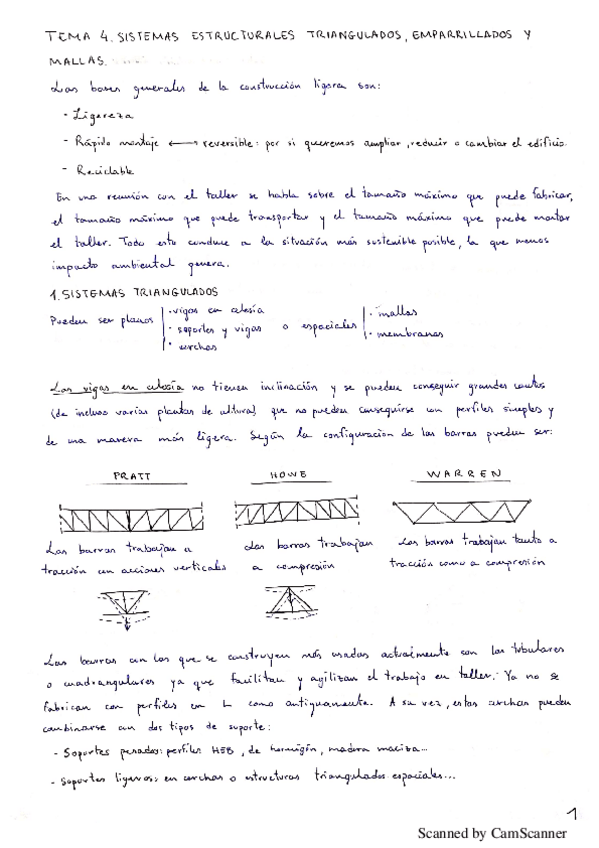 TEMA 4. SISTEMAS ESTRUCTURALES TRIANGULADOS, EMPARRILLADOS Y
MALLAS.
Las bases generales de la construcción ligera son:
- Ligereza
- Rápido montaje ⟷ reversible: por si queremos ampliar, reducir o cambiar el edificio.
- Reciclable
En una reunión con el taller se habla sobre el tamaño máximo que puede fabricar,
el tamaño máximo que puede transportar y el tamaño máximo que puede montar
el taller. Todo esto conduce a la situación más sostenible posible, la que menos
impacto ambiental genera.
1. SISTEMAS TRIANGULADOS
Pueden ser planos
· vigas en celosía
· soportes y vigas
· cerchas
o espaciales
· mallas
· membranas
Las vigas en celosía no tienen inclinación y se pueden conseguir grandes cantos
(de incluso varias plantas de altura) que no pueden conseguirse con perfiles simples y
de una manera más ligera. Según la configuración de las barras pueden ser:
PRATT HOWE WARREN
Las barras trabajan a
tracción con acciones verticales
Las barras trabajan
a compresión
Las barras trabajan tanto a
tracción como a compresión
Las barras con las que se construyen más usadas actualmente son las tubulares
o cuadrangulares ya que facilitan y agilizan el trabajo en taller. Ya no se
fabrican con perfiles en L como antiguamente. A su vez, estas cerchas pueden
combinarse con dos tipos de soporte:
- Soportes pesados: perfiles HEB, de hormigón, madera maciza...
- Soportes ligeros: en cerchas o estructuras triangulados espaciales...
1
Scanned by CamScanner